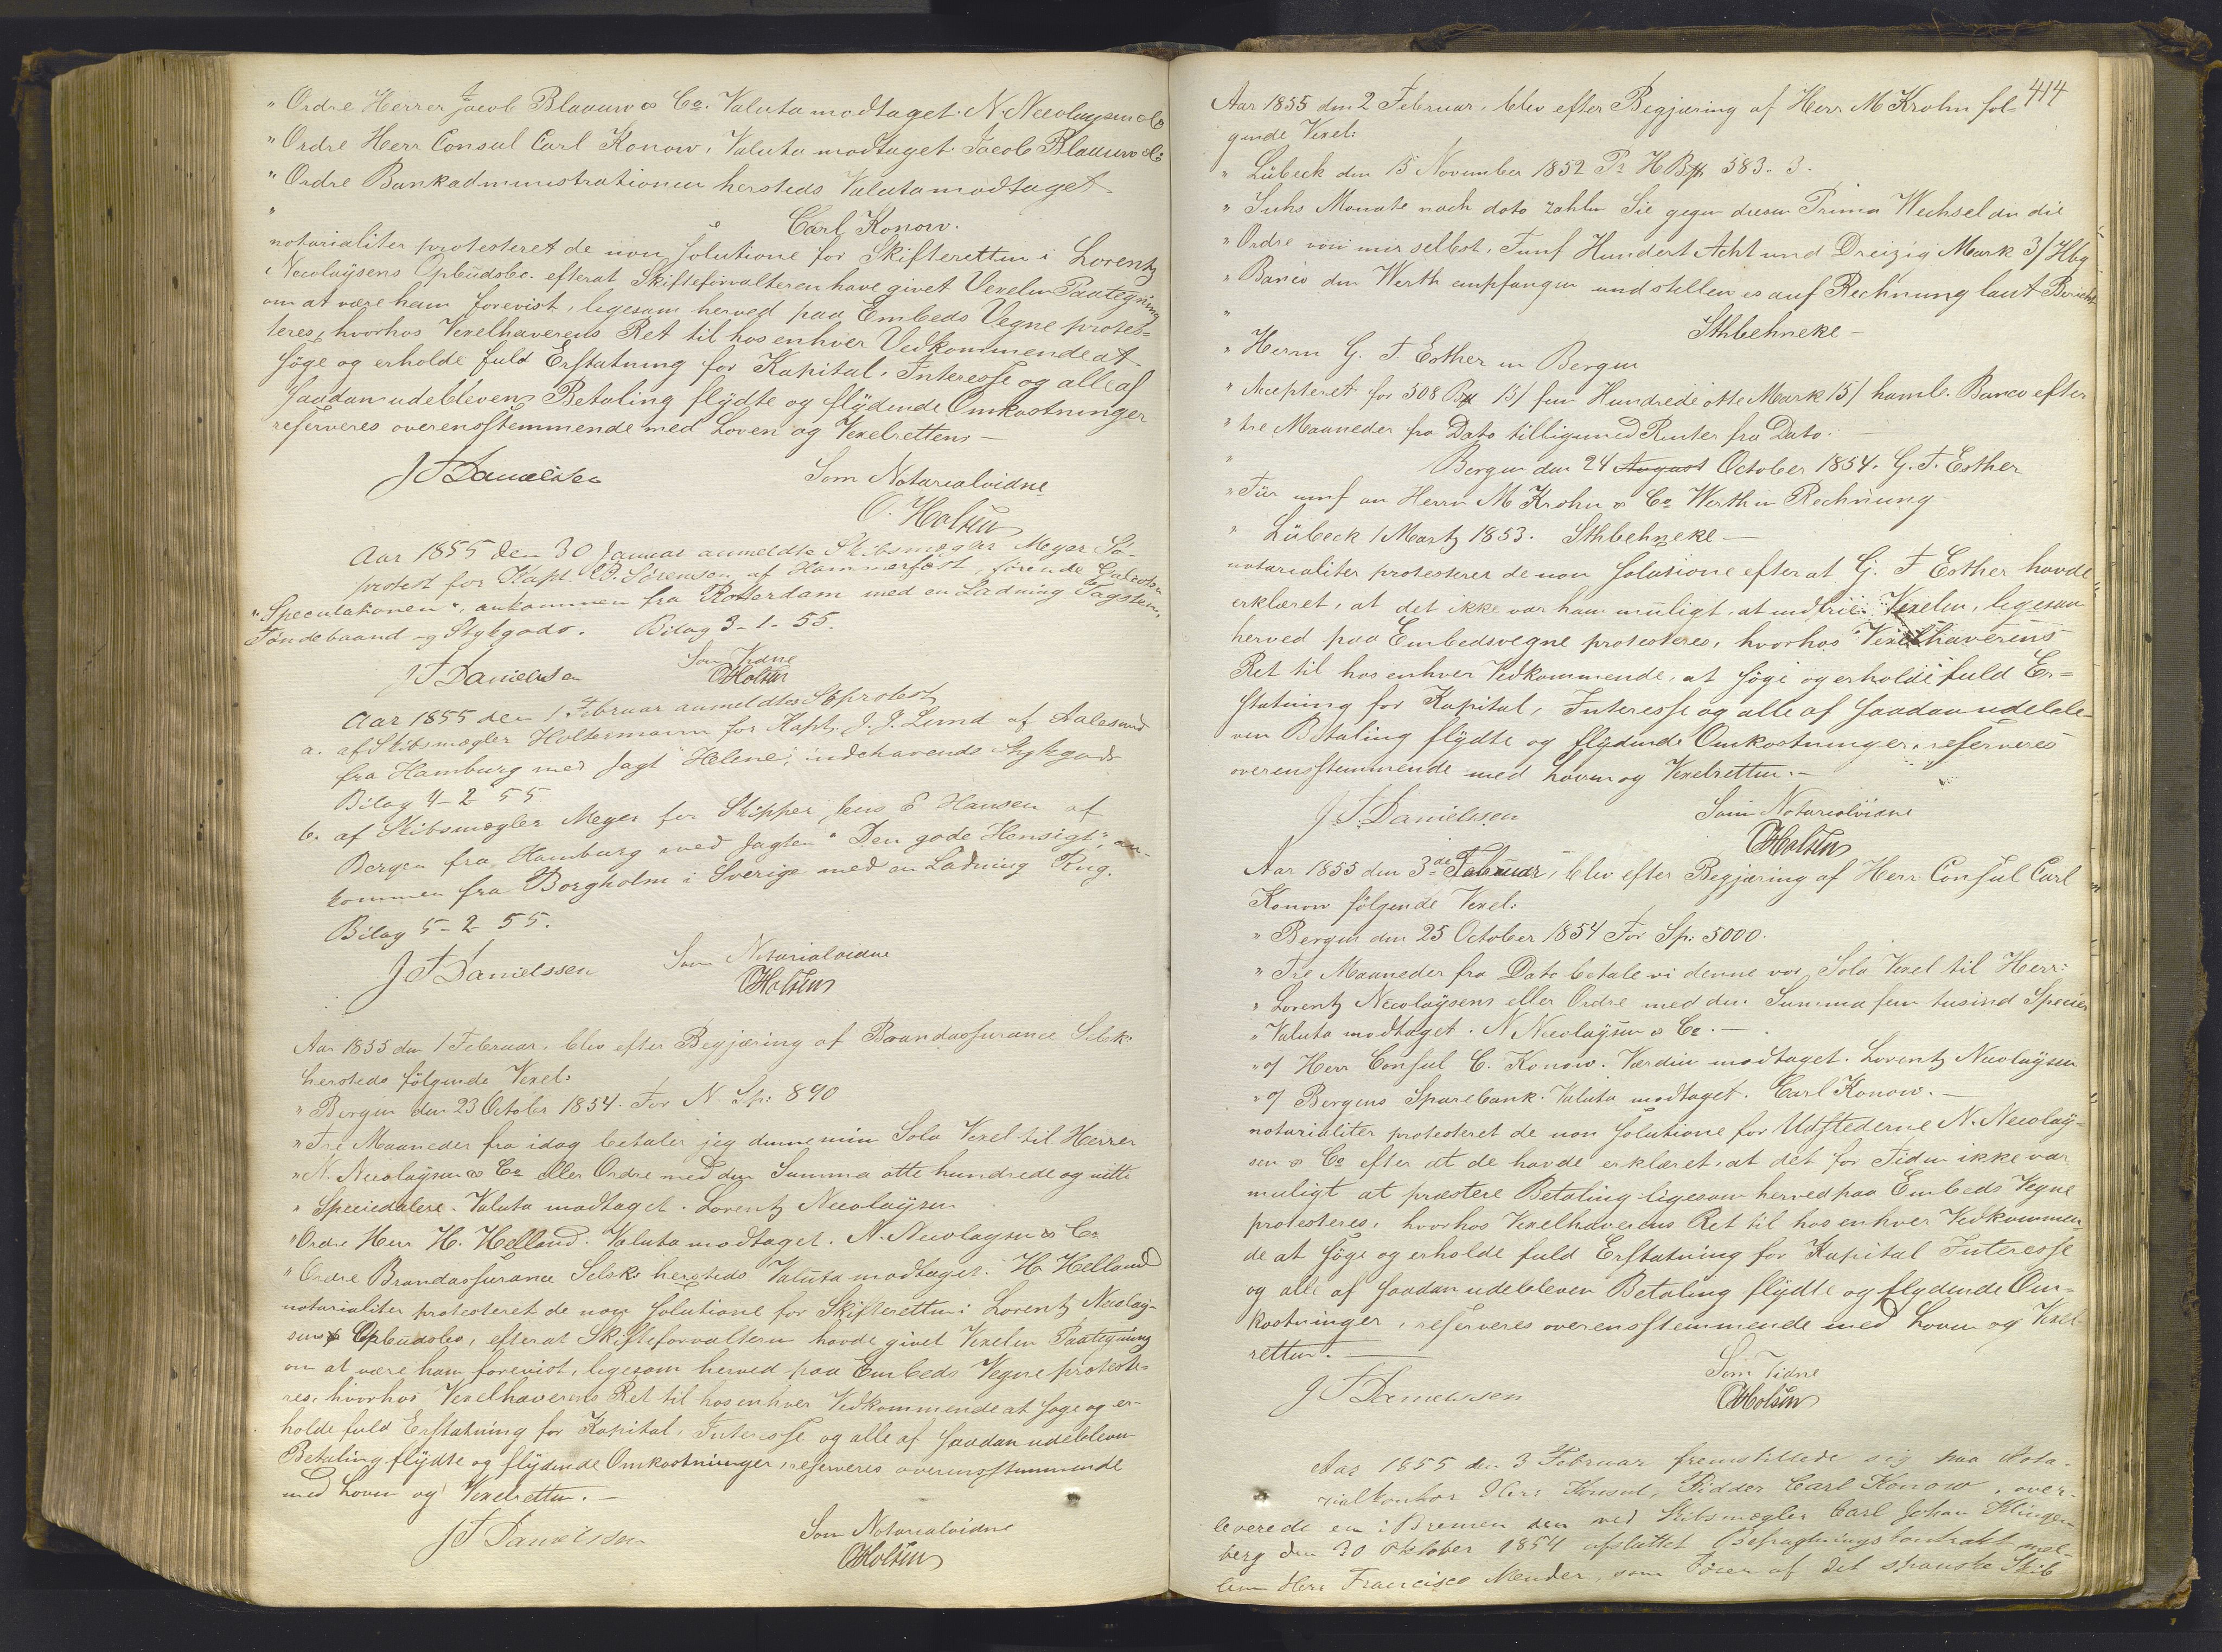 " Ordre Herrer Jacob Blaauw & Co. Valuta modtaget. N. Nicolaysen & Co
" Ordre Herr Consul Carl Konow, Valuta modtaget. Jacob Blaauw & Co
" Ordre Bankadministrationen hersteds Valuta modtaget
" Carl Konow.
notarialiter protesteret de non solutione for Skifteretten i Lorentz
Nicolaysens Opbudsbo. efterat Skifteforvalteren have givet Vexelen Paategning
om at være ham forevist, ligesom herved paa Embeds Vegne protes=
teres, hvorhos Vexelhaverens Ret til hos enhver Vedkommende at
søge og erholde fuld Erstatning for Kapital, Interesse og alle af
saadan udebleven Betaling flydte og flydende Omkostninger
reserveres overensstemmende med Loven og Vexelretten. —
J F Danielssen Som Notarialvidne
C. Holsen
Aar 1855 den 30 Januar anmeldte Skibsmægler Meyer Sø-
protest for Kapt. B. Sørensen af Hammerfest, førende Galeasen
"Speculationen", ankommen fra Rotterdam med en Ladning Tagsten,
Tøndebaand og Stykgods. Bilag 3-1-55.
J F Danielssen Som Vidne
CHolsen
Aar 1855 den 1 Februar anmeldtes Søprotest
a. af Skibsmægler Holtermann for Kapt. J. J. Lund af Aalesund
fra Hamburg med Jagt "Helene", indehavende Stykgods
Bilag 4-2 55
b. af Skibsmægler Meyer for Skipper Jens E Hansen af
Bergen fra Hamburg med Jagten "Den gode Hensigt", an-
kommen fra Borgholm i Sverige med en Ladning Rug.
Bilag 5-2 55.
J F Danielssen Som Notarialvidne
CHolsen
Aar 1855 den 1 Februar, blev efter Begjæring af Brandassurance Selsk.
hersteds følgende Vexel:
" Bergen den 23 October 1854. For N. Sp: 890
" Tre Maaneder fra idag betaler jeg denne min Sola Vexel til Herrer
" N. Nicolaysen & Co eller Ordre med den Summa otte hundrede og nitti
" Speciedalere. Valuta modtaget. Lorentz Nicolaysen
" Ordre Herr H. Helland. Valuta modtaget. N. Nicolaysen & Co
" Ordre Brandassurance Selsk. hersteds Valuta modtaget. H. Helland
notarialiter protesteret de non solutione for Skifteretten i Lorentz Nicolay-
sens Opbudsbo, efterat Skifteforvalteren havde givet Vexelen Paategning
om at være ham forevist, ligesom herved paa Embeds Vegne proteste-
res, hvorhos Vexelhaverens Ret til hos enhver Vedkommende at søge og er-
holde fuld Erstatning for Kapital, Interesse og alle af saadan udebleven
Betaling flydte og flydende Omkostninger, reserveres overensstemmende
med Loven og Vexelretten. —
J F Danielssen Som Notarialvidne
CHolsen
414
Aar 1855 den 2 Februar, blev efter Begjæring af Herr M Krohn føl-
gende Vexel:
" Lübeck den 15 November 1852 Pr HBM 583. 3.
" Sechs Monate nach dato zahlen Sie gegen diesen Prima Wechsel an die
" Ordre von mir selbst, Funf Hundert Acht und Dreizig Mark 3/ Hbg
" Banco den Werth empfangen und stellen es auf Rechnung laut Bericht
" Sthbehneke —
" Herrn G. F. Esther in Bergen
" Accepteret for 508 BM 15/ fem Hundrede otte Mark 15/ hamb. Banco efter
" tre Maaneder fra Dato tilligemed Renter fra Dato. —
" Bergen den 24 August October 1854. G. F. Esther
" Für umf an Herrn M Krohn & Co Werth in Rechnung
" Lübeck 1 Martz 1853. Sthbehneke —
notarialiter protesteret de non solutione efterat G. F Esther havde
erklæret, at det ikke var ham muligt, at indfrie Vexelen, ligesom
herved paa Embedsvegne protesteres, hvorhos Vexelhaverens
Ret til hos enhver Vedkommende, at søge og erholde fuld Er=
statning for Kapital, Interesse og alle af saadan udeble-
ven Betaling flydte og flydende Omkostninger, reserveres
overensstemmende med Loven og Vexelretten. —
J. F. Danielssen Som Notarialvidne
CHolsen
Aar 1855 den 3de Februar, blev efter Begjæring af Herr Consul Carl
Konow følgende Vexel:
" Bergen den 25 October 1854 For Sp: 5000.
" Tre Maaneder fra Dato betale vi denne vor Sola Vexel til Herr:
" Lorentz Nicolaysens eller Ordre med den Summa fem tusind Species
" Valuta modtaget. N Nicolaysen & Co. —
" of Herr Consul C. Konow. Værdien modtaget. Lorentz Nicolaysen
" of Bergens Sparebank. Valuta modtaget. Carl Konow. —
notarialiter protesteret de non solutione for Udstederne N. Nicolay=
sen & Co efter at de havde erklæret, at det for Tiden ikke var
muligt at præstere Betaling ligesom herved paa Embeds Vegne
protesteres, hvorhos Vexelhaverens Ret til hos enhver Vedkommen-
de at søge og erholde fuld Erstatning for Kapital Interesse
og alle af saadan udebleven Betaling flydte og flydende Om=
kostninger, reserveres overensstemmende med Loven og Vexel-
retten. —
J F Danielssen Som Vidne
CHolsen
Aar 1855 den 3 Februar fremstillede sig paa Nota-
rialkontor Herr Konsul, Ridder Carl Konow, over-
leverede en i Bremen den ved Skibsmægler Carl Johan Klingen
berg den 30 Oktober 1854 afsluttet Befragtningskontrakt mel-
lem Herr Francisco Mender, som Fører af det spanske Skib